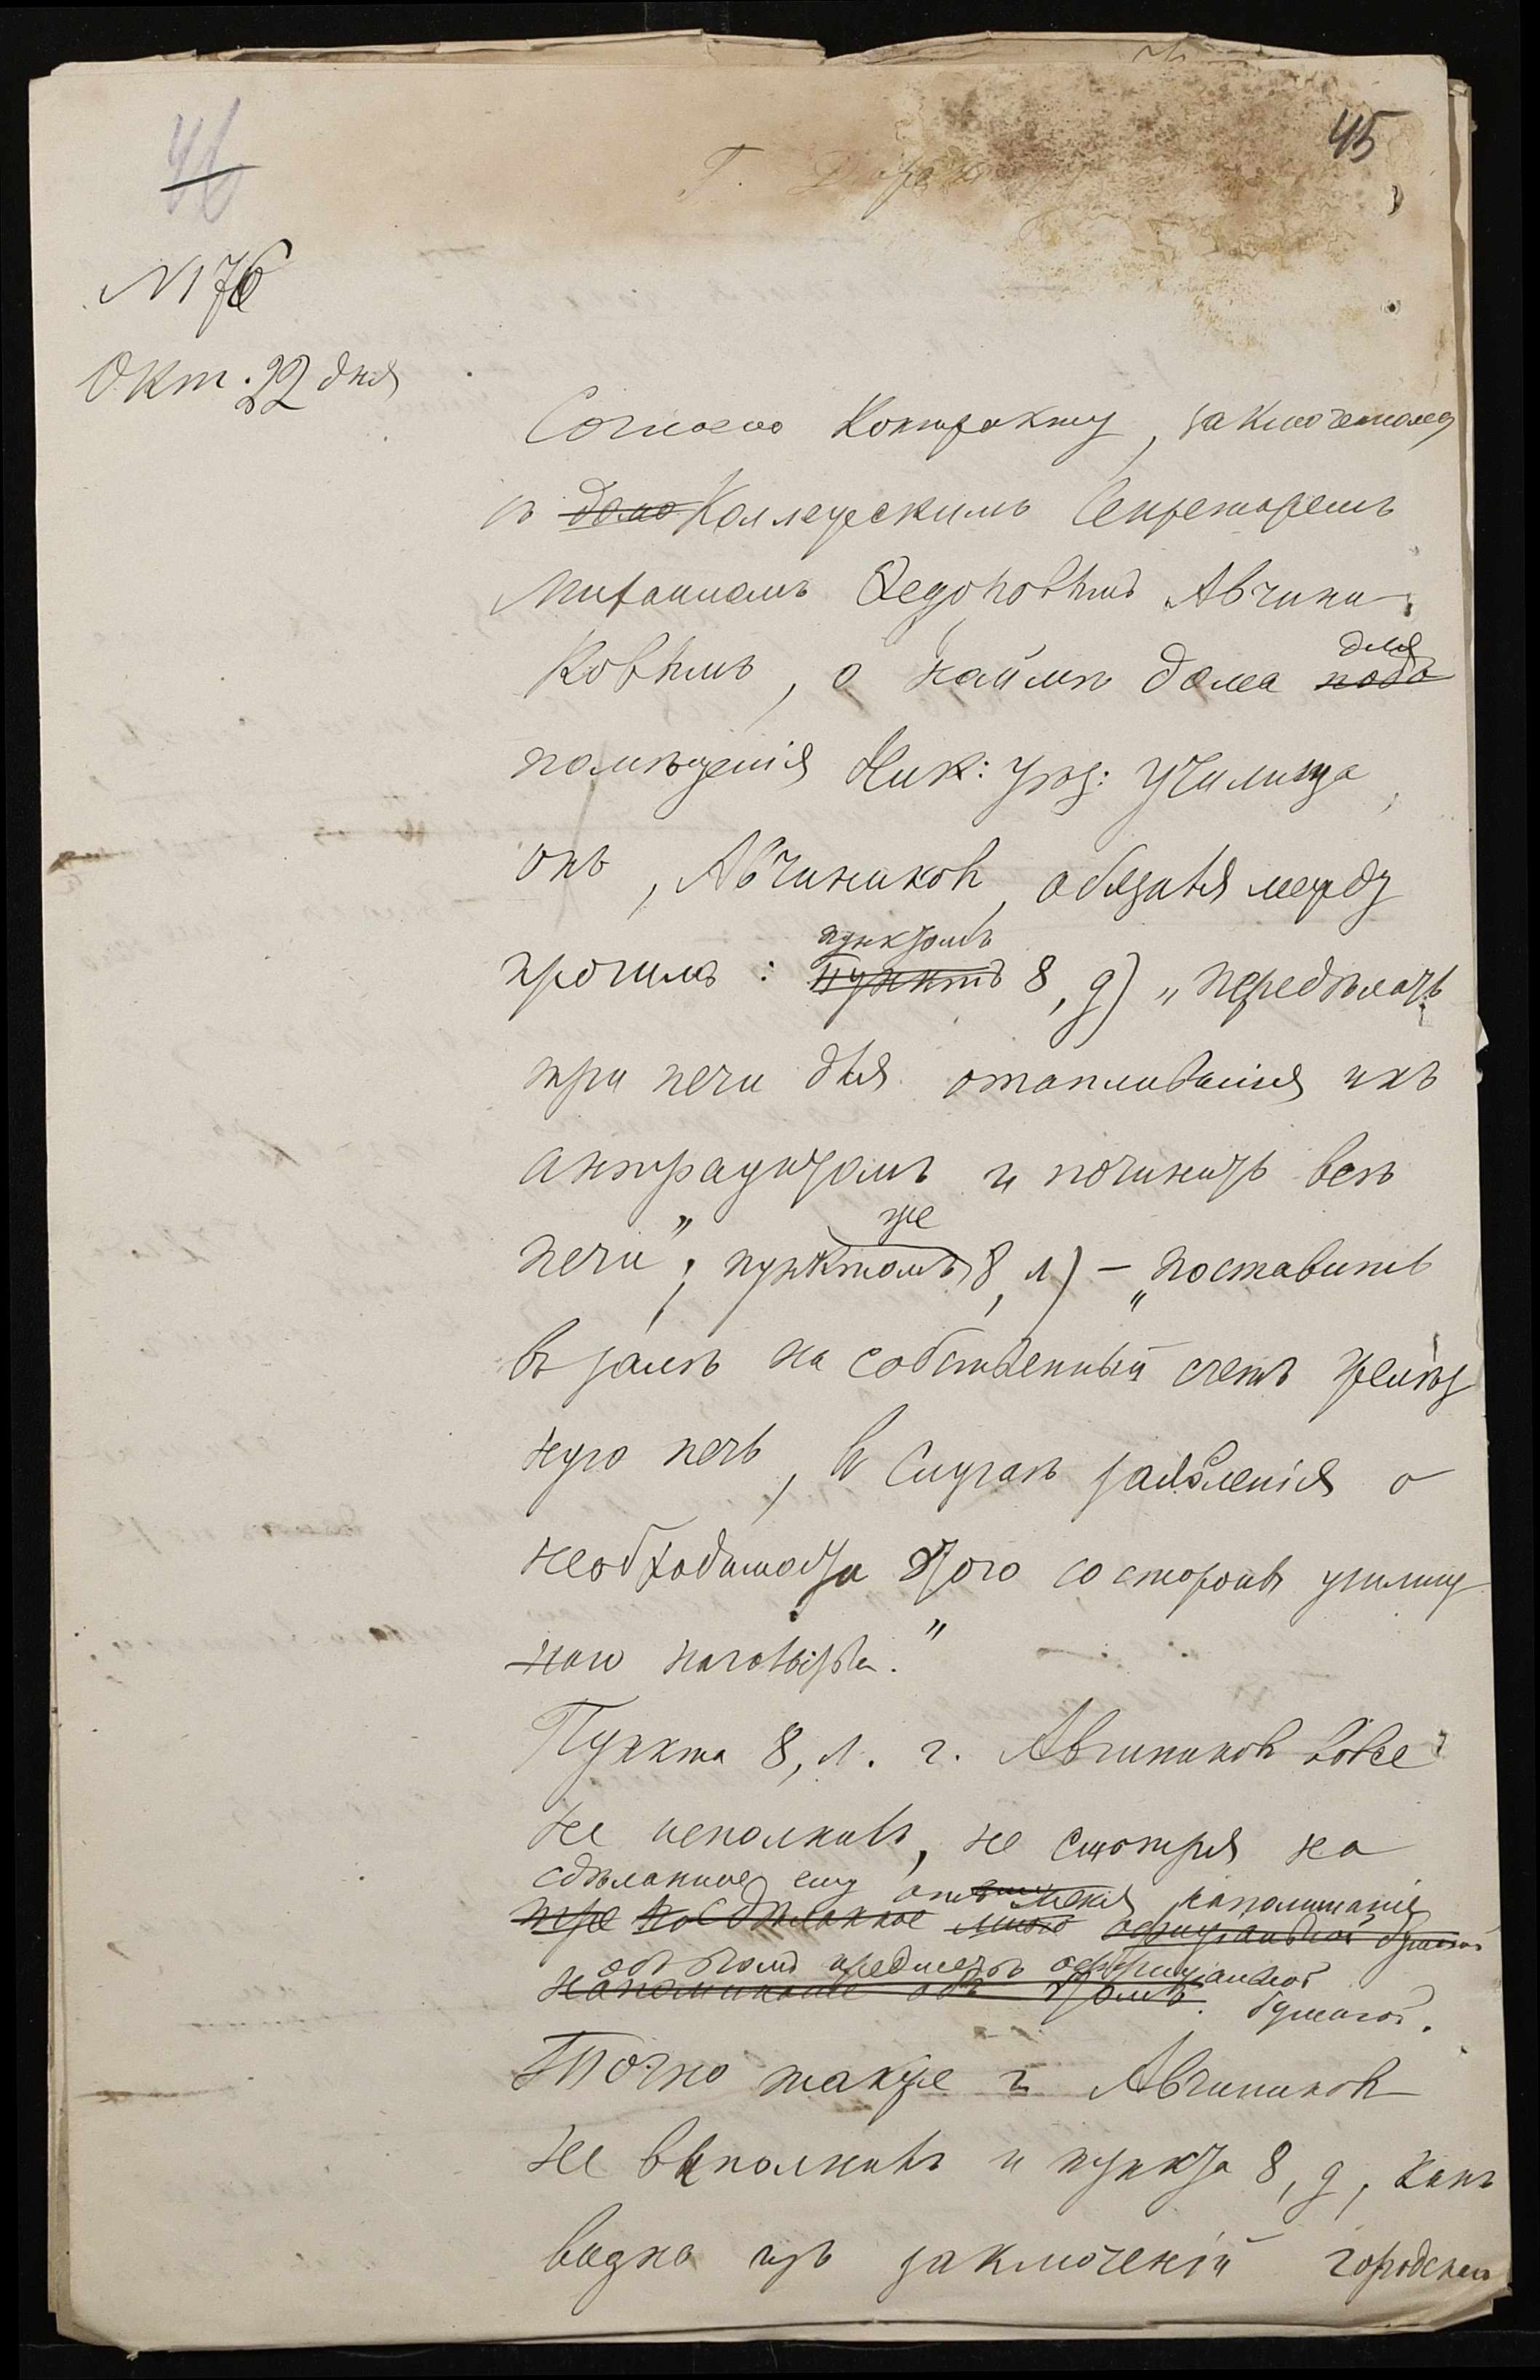 46
45
N 176
Окт. 22 дня
Согласно Контракту, заключенному
съ домо Коллежскимъ Секретаремъ
Михаиломъ Ѳедоровымъ Авчини
ковымъ, о наймѣ дома подъ для
помѣщенія Ник: уѣз: училища,
онъ, Авчиников, обязался между
прочимъ: пунктъ пунктомъ 8, д) „передѣлать
три печи для отапливанія ихъ
антрацитомъ и починить всѣ
печи"; пунктомъ же 8, л) – „поставить
въ залѣ на собственный счетъ желѣз
ную печь, въ случаѣ заявленія о
необходимости этого со стороны училищ
наго начальства."
Пункта 8, л. г. Авчиников вовсе
не исполнилъ, не смотря на
сдѣланное ему отъ меня напоминаніе
сдѣланное мною оффиціальной бумагой
объ этомъ предметѣ оффиціальной
напоминаніе объ этомъ. бумагой.
Точно также г. Авчиников
не выполнилъ и пункта 8, д, какъ
видно изъ заключеній городскаго